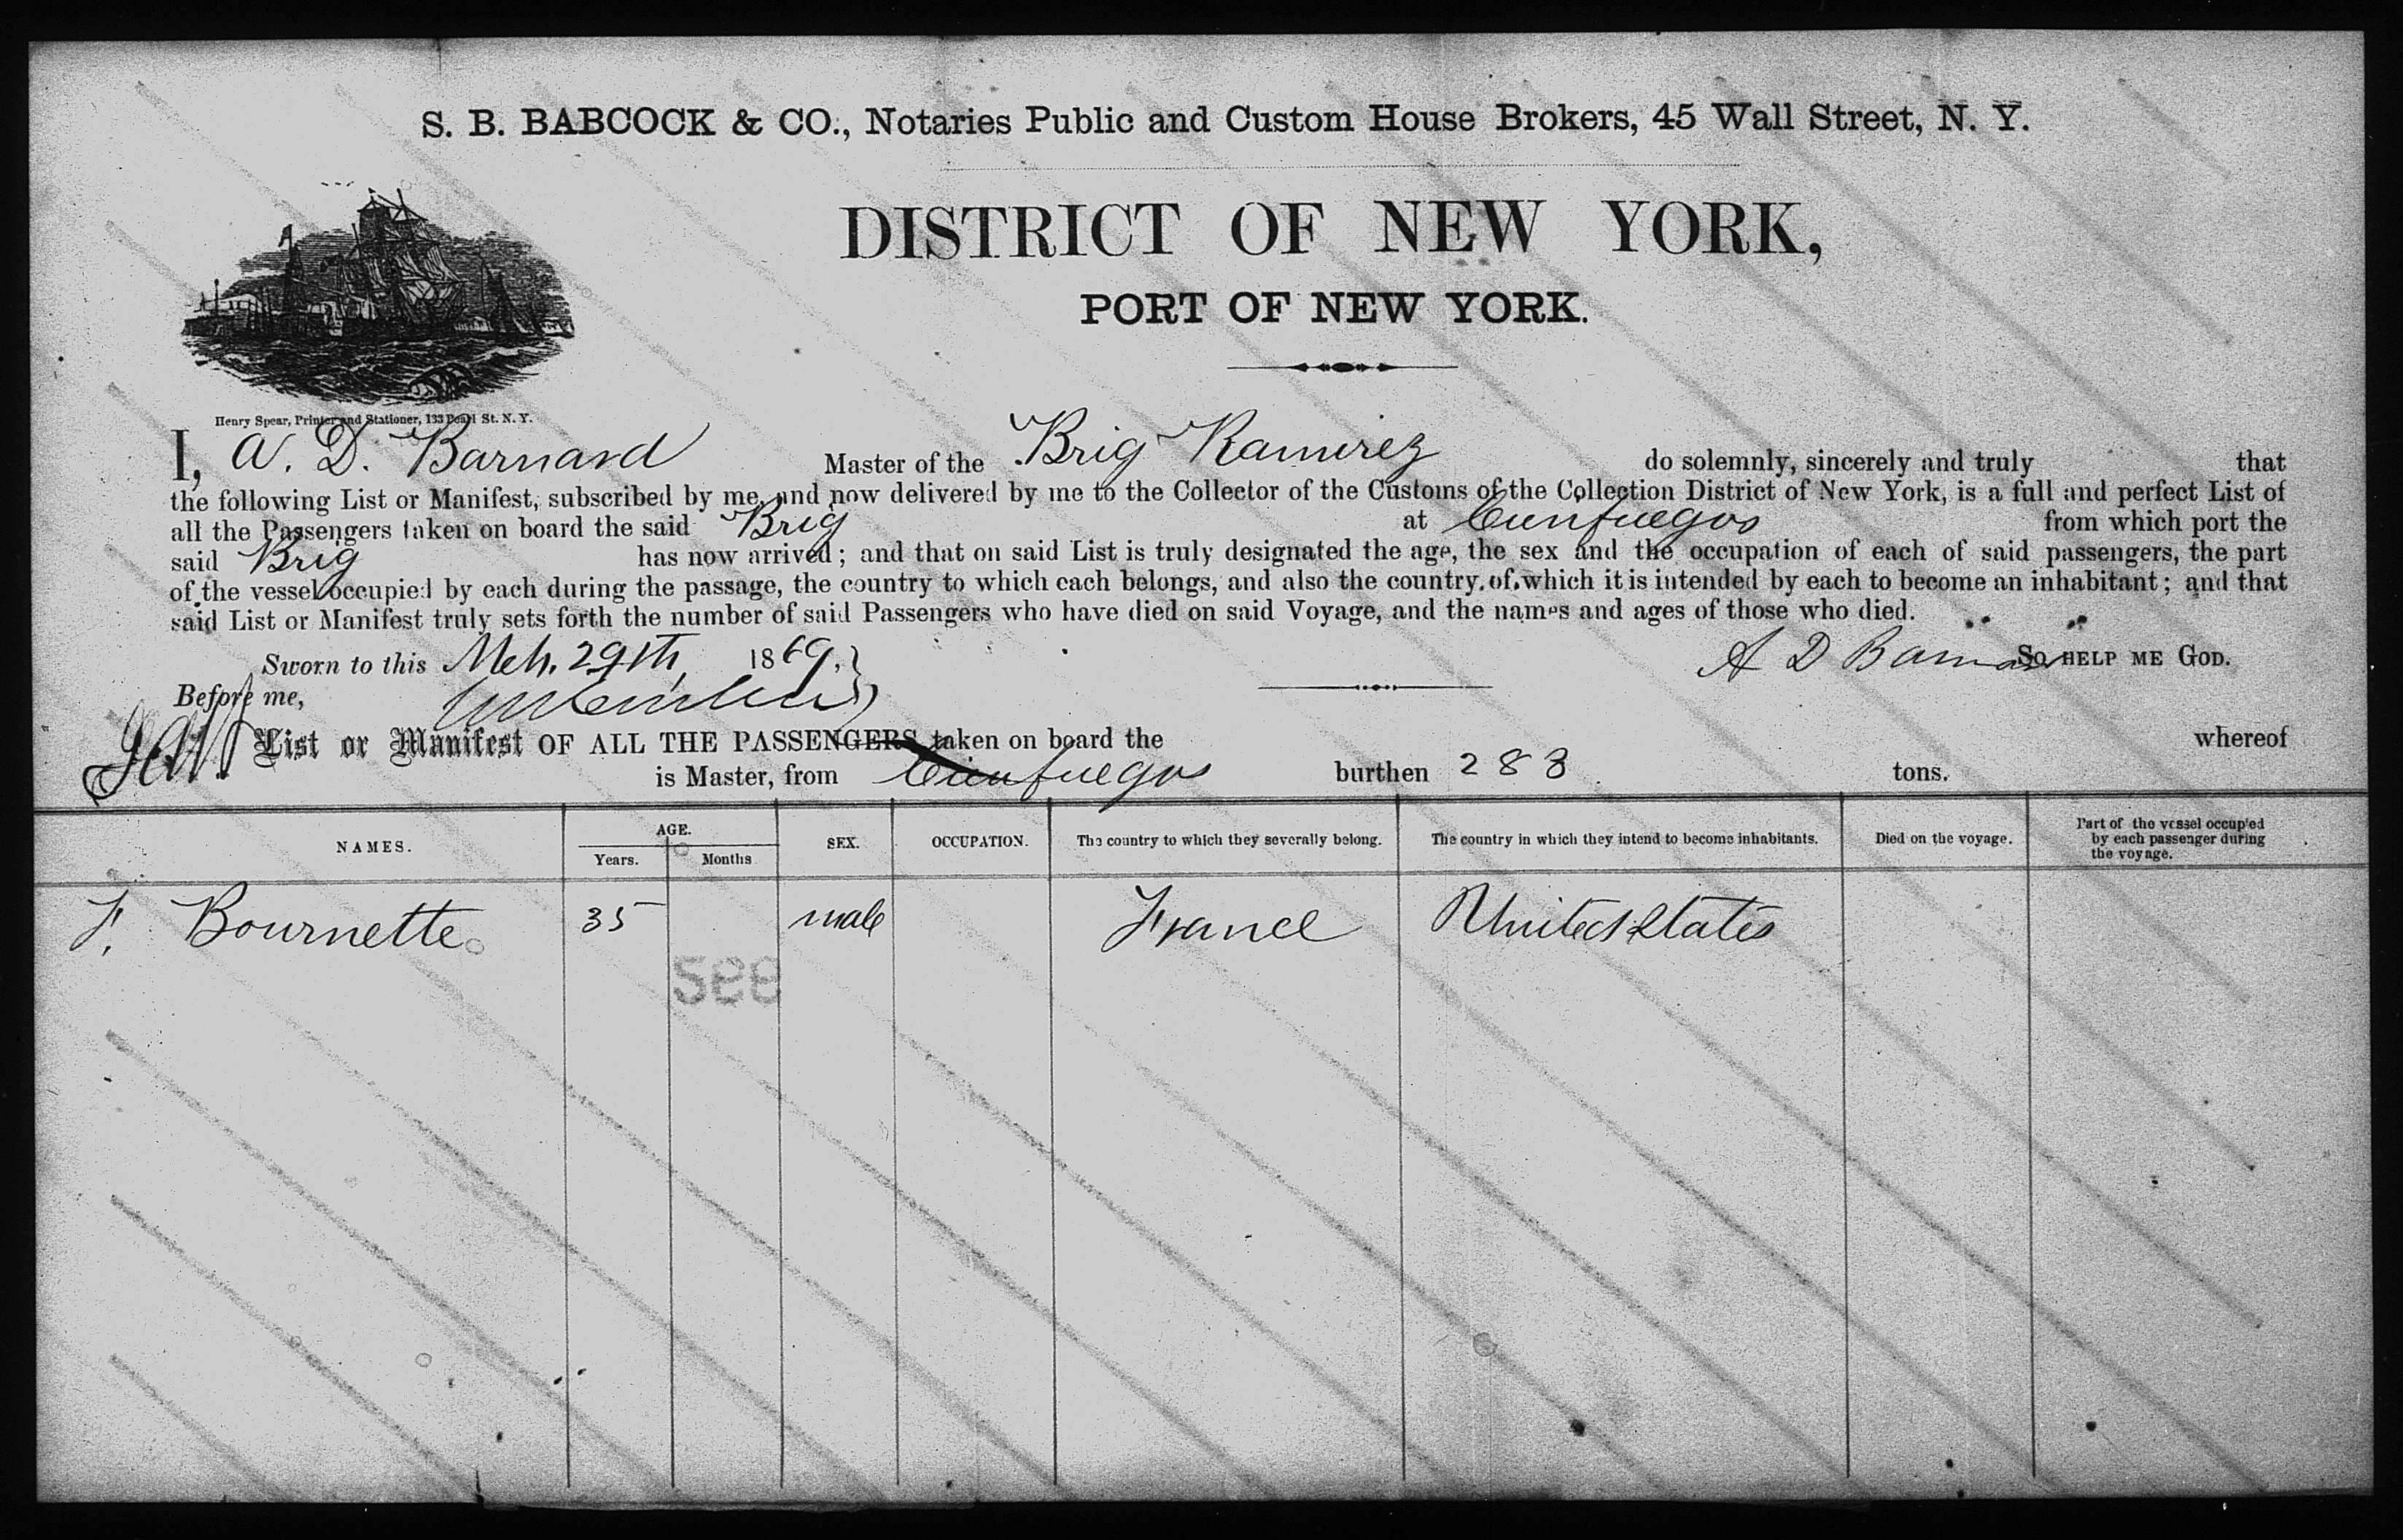 S. B. BABCOCK & CO., Notaries Public and Custom House Brokers, 45 Wall Street, N. Y.
DISTRICT OF NEW YORK,
PORT OF NEW YORK.
Henry Spear, Printer and Stationer, 133 Pearl St. N. Y.
I, A. D. Barnard Master of the Brig Ramirez do solemnly, sincerely and truly that
the following List or Manifest, subscribed by me, and now delivered by me to the Collector of the Customs of the Collection District of New York, is a full and perfect List of
all the Passengers taken on board the said Brig at Cienfuegos from which port the
said Brig has now arrived; and that on said List is truly designated the age, the sex and the occupation of each of said passengers, the part
of the vessel occupied by each during the passage, the country to which each belongs, and also the country of which it is intended by each to become an inhabitant; and that
said List or Manifest truly sets forth the number of said Passengers who have died on said Voyage, and the names and ages of those who died.
Sworn to this Mch. 29th, 1869. A D Barnard SO HELP ME GOD.
Before me,
List or Manifest OF ALL THE PASSENGERS taken on board the whereof
is Master, from Cienfuegos burthen 283 tons.
NAMES. AGE. Years. Months SEX. OCCUPATION. The country to which they severally belong. The country in which they intend to become inhabitants. Died on the voyage. Part of the vessel occupied by each passenger during the voyage.
F. Bournette 35 male France United States